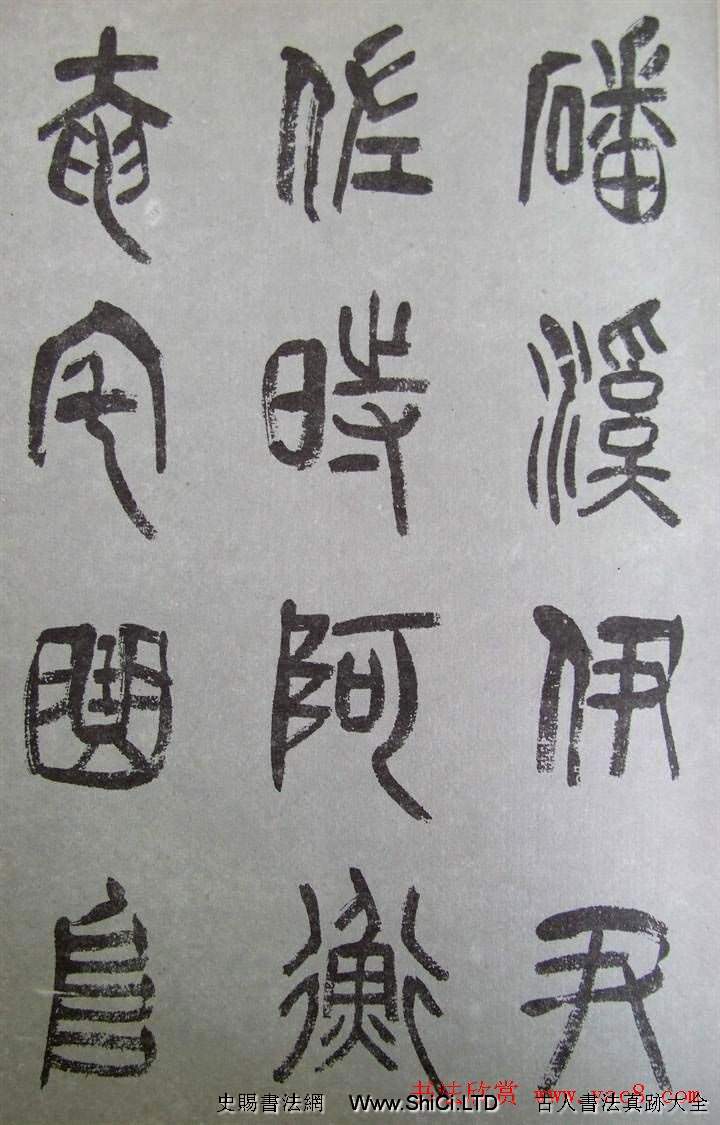 磻溪伊尹
佐時阿衡
奄宅曲阜
书法欣赏 www.yac8.com
史賜書法網 Www.ShiCi.LTD 古人書法真跡大全